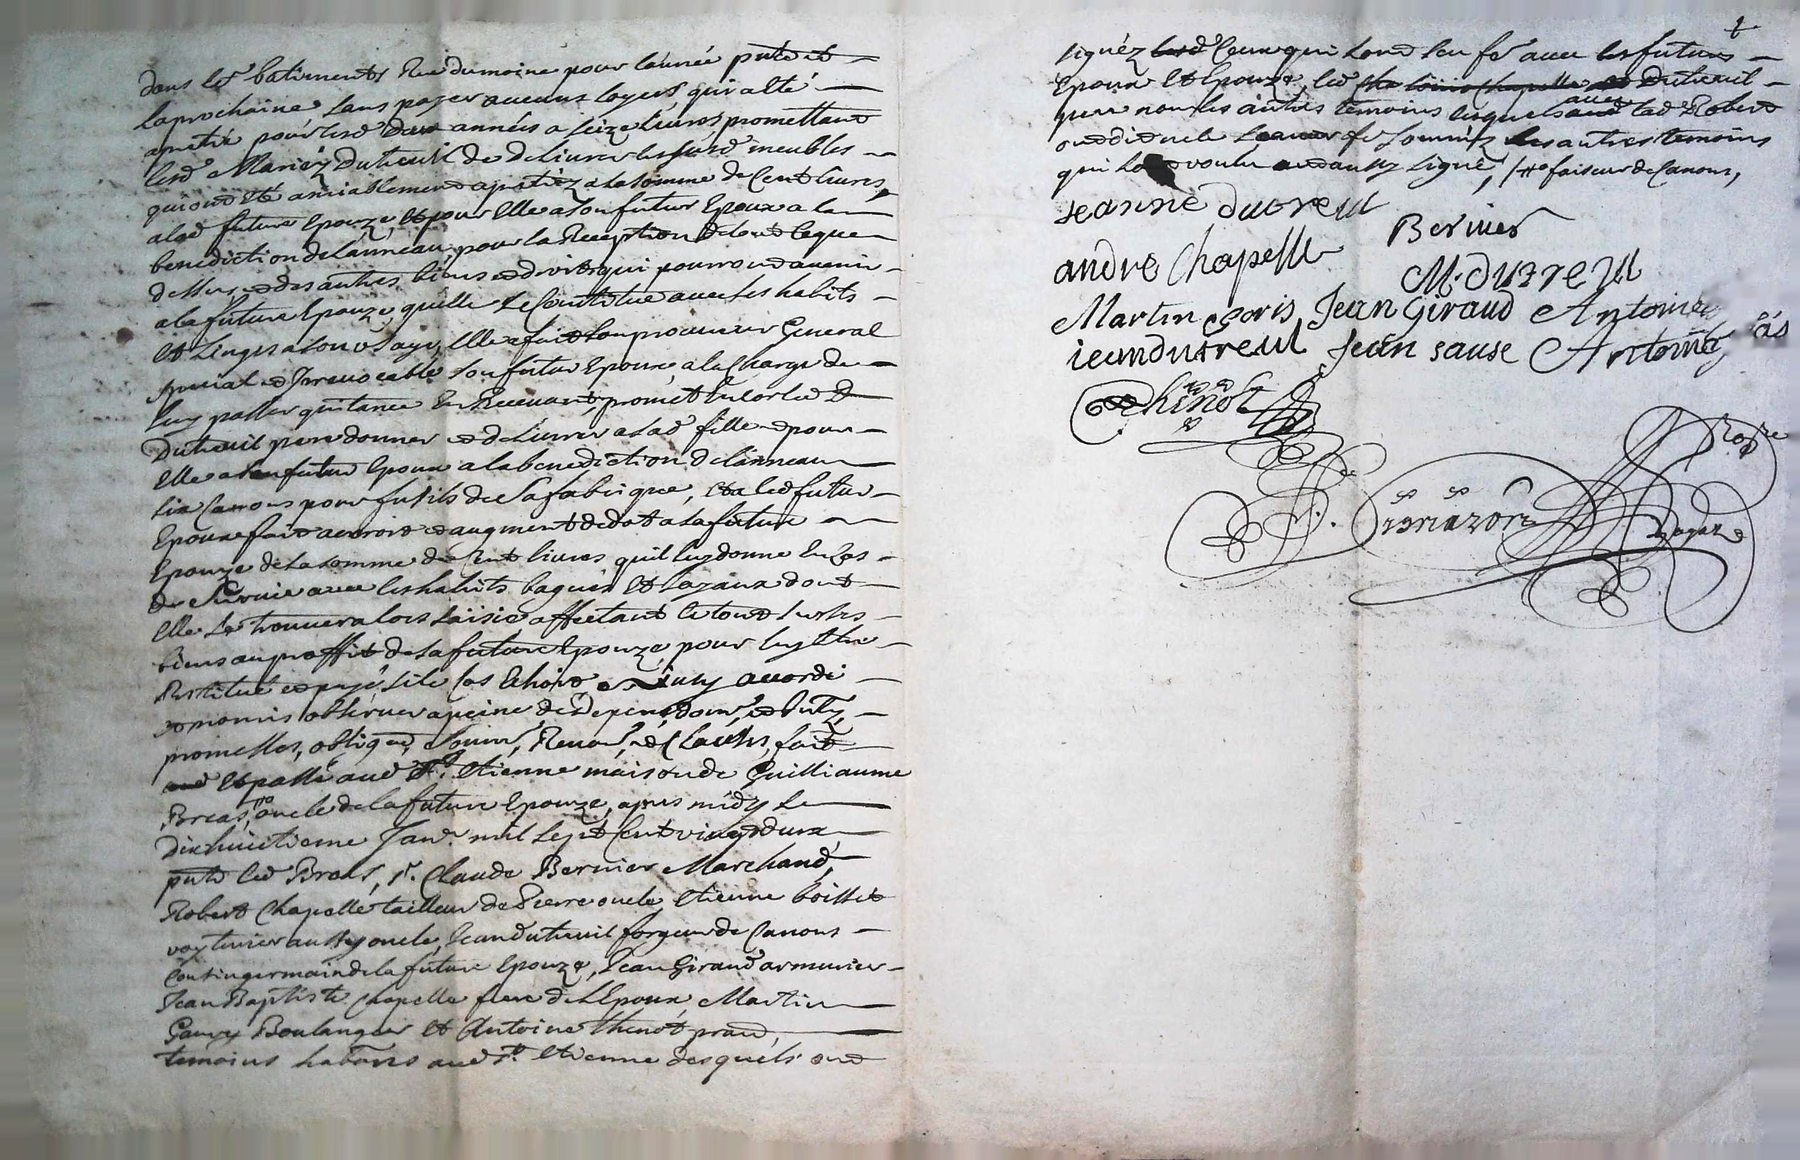 dans led. batiments Rue dumoine pour lannée pnte et
la prochaine sans payer aucuns loyers, qui a Eté
apretié pour lesd. deux années a seize Livres promettant
lesd Mariéz Dutreuil de delivrer les susd meubles
qui ont Eté amiablement apretiéz a la somme de Cent livres,
a lad future Epouze, Et pour Elle a son futur Epoux a la
benediction de lanneau, pour la Reception de tout ce que
dessus, et des autres biens et droits qui pourront avenir
a la future Epouze quelle se Constitue avec ses habits
Et Linges a son usage, Elle a fait son procureur General
special et Irrevocable son futur Epoux, a la Charge de
luy passer quitance En Recevant, promet Encor led
Dutreuil pere donner et delivrer a sad fille et pour
Elle a son futur Epoux a la benediction de lanneau
six Canons pour fusils de sa fabrique, Et a led futur
Epoux fait accroit et augment de dot a la future
Epouze de la somme de Cent livres quil luy donne En Cas
de Survie avec les habits bagues Et Joyaux dont
Elle se trouvera lors saisie affectant le tout sur ses
biens au proffit de la future Epouze pour luy Etre
Restitué et payé si le Cas Echoit, ainsy accordé
et promis observer a peine de depens dom. et Intz,
promesses, obligaõn, soumis, Renon, et Clauses, fait
Et passé aud St. Etienne maison de Guilliaume
Breas, oncle de la future Epouze, apres midy le
dix huitieme Janr. mil sept Cent vingt deux
pnts led Breas, sr. Claude Bernier Marchand,
Robert Chapelle tailleur de Pierre oncle, Etienne boissié
voyturier aussy oncle, Jean dutreuil forgeur de Canons
Cousin germain de la future Epouze, Jean Giraud armurier
Jean Baptiste Chapelle frere de l'Epoux Martin
Boulanger Et Antoine Thinot prand,
temoins habtans aud St. Etienne desquels ont
signéz Ceux qui sont sceu fe. avec les futurs
Epoux Et Epouze, led Dutreuil
pere non les autres temoins lesquels avec lad Robert
ont dit ne le scavoir fe. sommés les autres temoins
qui lont voulu ont aussy signé, /# faiseur de Canons,
jeanne dutreul
Bernier
andre Chapelle
M. dutreul
Martin goris Jean Giraud Antoine
iean dutreul Jean sause Antoine
Thinot